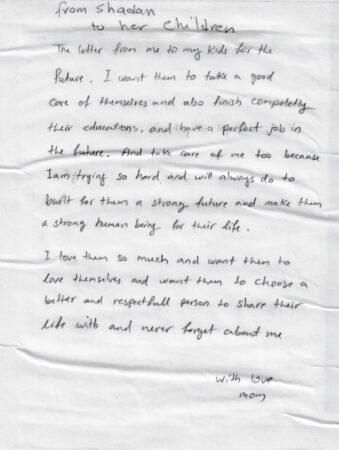 from Shadan
to her children
The letter from me to my kids for the
future. I want them to take a good
care of themselves and also finish compeletly
their educations, and have a perfect job in
the future. And take care of me too because
I am trying so hard and will always do to
built for them a strong future and make them
a strong human being for their life.
I love them so much and want them to
love themselves and want them to choose a
better and respectfull person to share their
life with and never forget about me
with love
mom